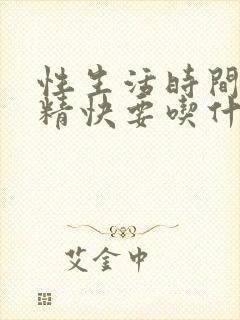 性生活時間
精快要喫什
艾金中